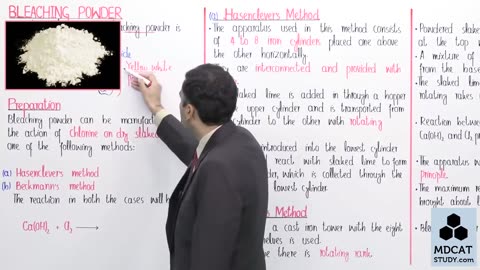 BLEACHING POWDER
bleaching powder is
Yellow white
Preparation
Bleaching powder can be manufactu
the action of chlorine on dry slaked
one of the following methods:
(a) Hasenclever's Method
(b) Beckmann's method
The reaction in both the cases will h
Ca(OH)2 + Cl2 ⟶
(a) Hasenclevers Method
• The apparatus used in this method consists
of 4 to 8 iron cylinders placed one above
the other horizontally.
are interconnected and provided with
slaked lime is added in through a hopper
upper cylinder and is transported from
cylinder to the other with rotating
introduced into the lowest cylinder
react with slaked lime to form
der, which is collected through the
lowest cylinder
s Method
a cast iron tower with the eight
shelves is used.
there is rotating rank.
• Powdered slake
at the top w
• A mixture of
from the base
• The slaked lim
rotating rakes i
• Reaction betwe
Ca(OH)2 and Cl2 pr
• The apparatus w
principle.
• The maximum r
brought about l
MDCAT
STUDY.com